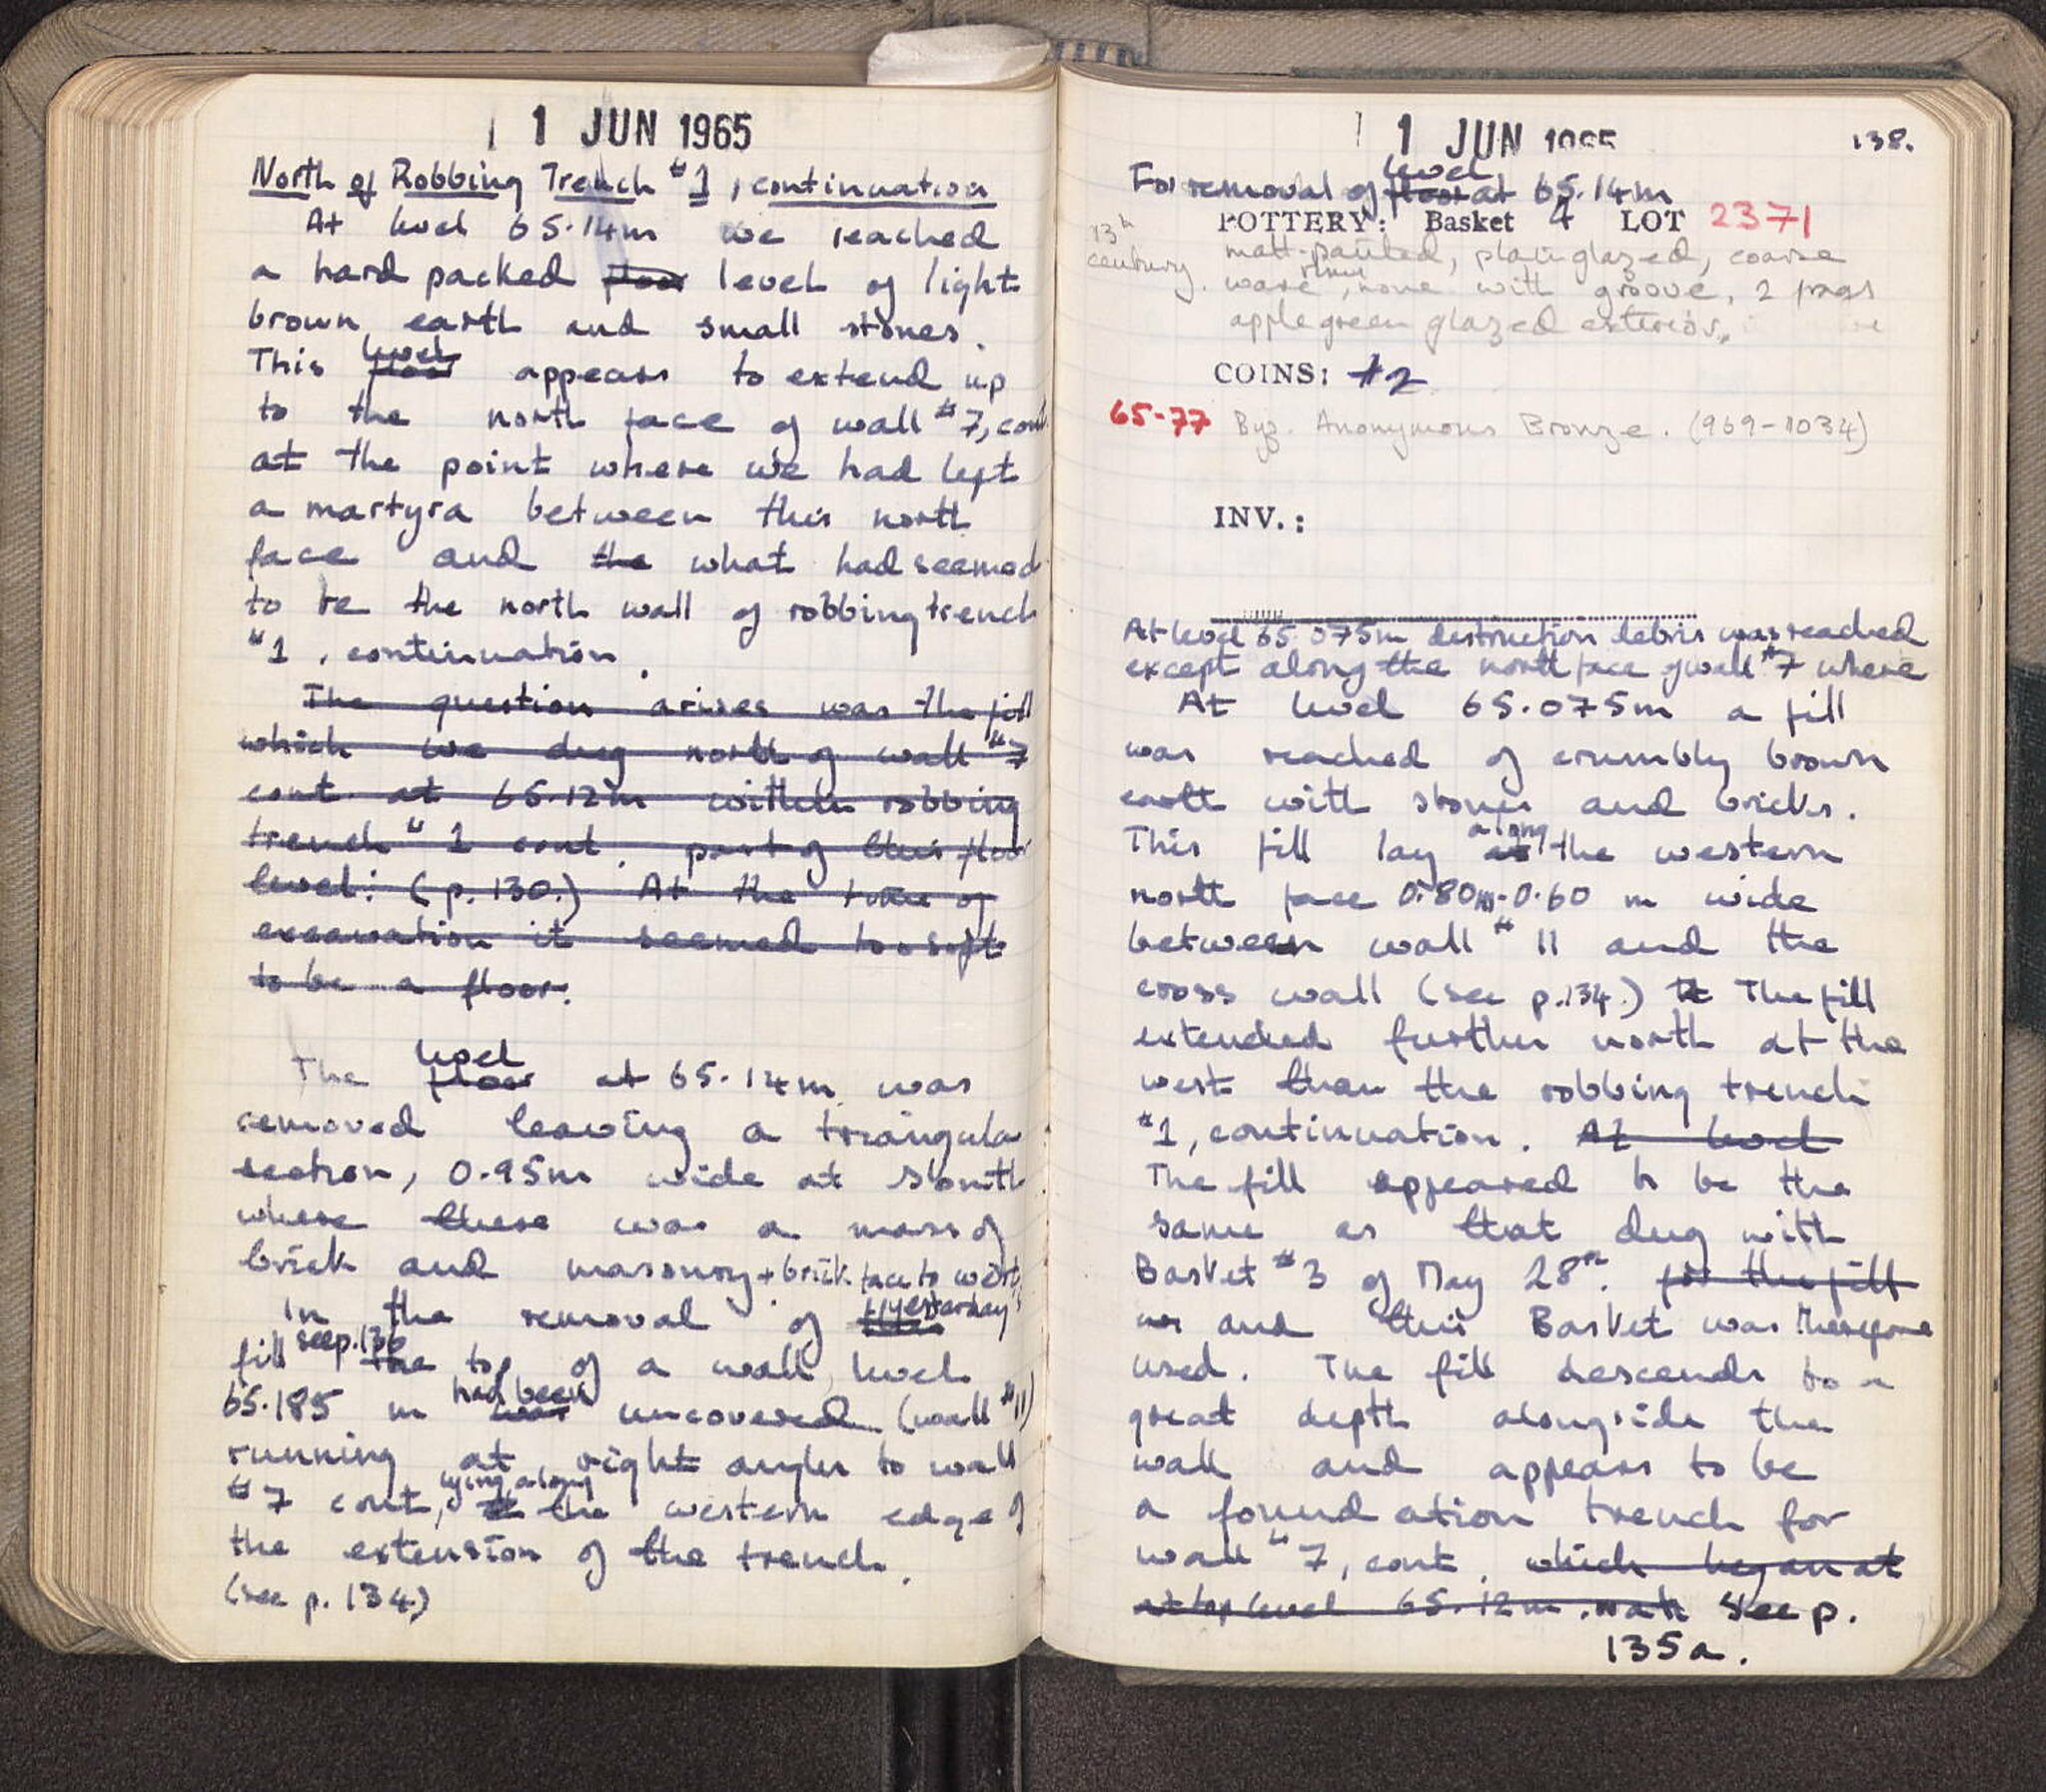 1 JUN 1965
North of Robbing Trench #1, continuation
At level 65.14m we reached
a hard packed floor level of light
brown earth and small stones.
level
This floor appears to extend up
to the north face of wall #7, cont.
at the point where we had left
a martyra between this north
face and the what had seemed
to be the north wall of robbing trench
#1, continuation.
The question arises was the fill
which we dug north of wall #7
cont. at 65.12m within robbing
trench #1 cont. part of this floor
level: (p. 130.) At the time of
excavation it seemed too soft
to be a floor.
level
The floor at 65.14m was
removed leaving a triangular
section, 0.95m wide at south
where there was a mass of
brick and masonry + brick face to west.
In the removal of this yesterday's
fill see p. 136 the top of a wall, level
65.185 m was had been uncovered (wall #11)
running at right angles to wall
#7 cont, lying along the western edge of
the extension of the trench.
(see p. 134.)
1 JUN 1965
138.
level
For removal of floor at 65.14m
POTTERY: Basket 4 LOT 2371
13th century. matt-painted, plain glazed, coarse
ware, none with groove, 2 frags
apple green glazed exterior,
COINS: #2
65-77 Byz. Anonymous Bronze. (969-1034)
INV.:
At level 65.075m destruction debris was reached
except along the north face of wall #7 where
At level 65.075m a fill
was reached of crumbly brown
earth with stones and bricks.
along
This fill lay at the western
north face 0.80m-0.60 m wide
between wall #11 and the
cross wall (see p.134.) The The fill
extended further north at the
west than the robbing trench
#1, continuation. At level
The fill appeared to be the
same as that dug with
Basket #3 of May 28th. for the fill
and this Basket was therefore
used. The fill descends to a
great depth alongside the
wall and appears to be
a foundation trench for
wall #7, cont. which began at
at top level 65.12m. See p.
135a.